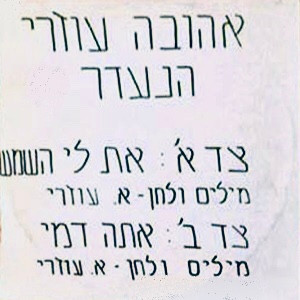 אהובה עוזרי
הנעדר
צד א': את לי השמש
מילים ולחן - א. עוזרי
צד ב': אתה דמי
מילים ולחן - א. עוזרי